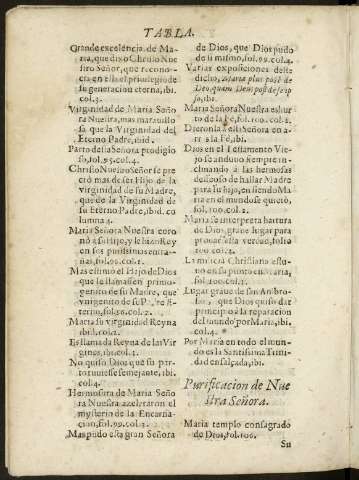 TABLA.
Grande excelencia de Ma-
ria, que dixo Christo Nue
stro Señor, que recono-
cia en ella el privilegio de
su generacion eterna, ibi.
col. 3.
Virginidad de Maria Seño
ra Nuestra, mas maravillo
sa que la Virginidad del
Eterno Padre, ibid.
Parto desta Señora prodigio
so, fol. 95. col. 4.
Christo Nuestro Señor se pre
ció mas de ser Hijo de la
virginidad de su Madre,
que de la Virginidad de
su Eterno Padre, ibid. co
lumna 4.
Maria Señora Nuestra coro
nó a su Hijo, y le hizo Rey
en sus purissimas entra-
ñas, fol. 99. col. 1.
Mas estimo el Hijo de Dios
que le llamassen primo-
genito de su Madre, que
vnigenito de su Padre E-
terno, fol. 99. col. 2.
Maria su virginidad Reyna
ibid. col. 2.
Es llamada Reyna de las Vir
gines, ibi. col. 1.
No quiso Dios que su par-
to tuviesse semejante, ibi.
col. 4.
Hermosura de Maria Seño
ra Nuestra
mysterio de la Encarna-
cion, fol. 99. col. 3.
Mas pudo esta gran Señora
de Dios, que Dios pudo
de si mismo, fol. 99. col. 4.
Varias exposiciones deste
dicho, Maria plus post de
Deo, quam Deus post de se ip
so, ibi.
Maria Señora Nuestra es hur
to de la Fé, fol. 100. col. 1.
Dieron la a esta Señora en a-
rras la Fé, ibi.
Dios en el Testamento Vie-
jo se anduvo siempre in-
clinando a las hermosas
deseoso de hallar Madre
para su hijo, en siendo Ma
ria en el mundo se quietó,
100. col. 2.
Maria se interpreta hartura
de Dios, grave lugar para
provar esta verdad, folio
100. col. 2.
La milicia Christiana estu-
vo en su punto en Maria,
fol. 100. col. 3.
Lugar grave de san Ambro-
sio, que Dios quiso dar
principio a la reparacion
del mundo por Maria, ibi.
col. 4.
Por Maria en todo el mun-
do es la Santissima Trini-
dad ensalçada, ibi.
Purificacion de Nue
stra Señora.
Maria templo consagrado
de Dios, fol. 100.
Su